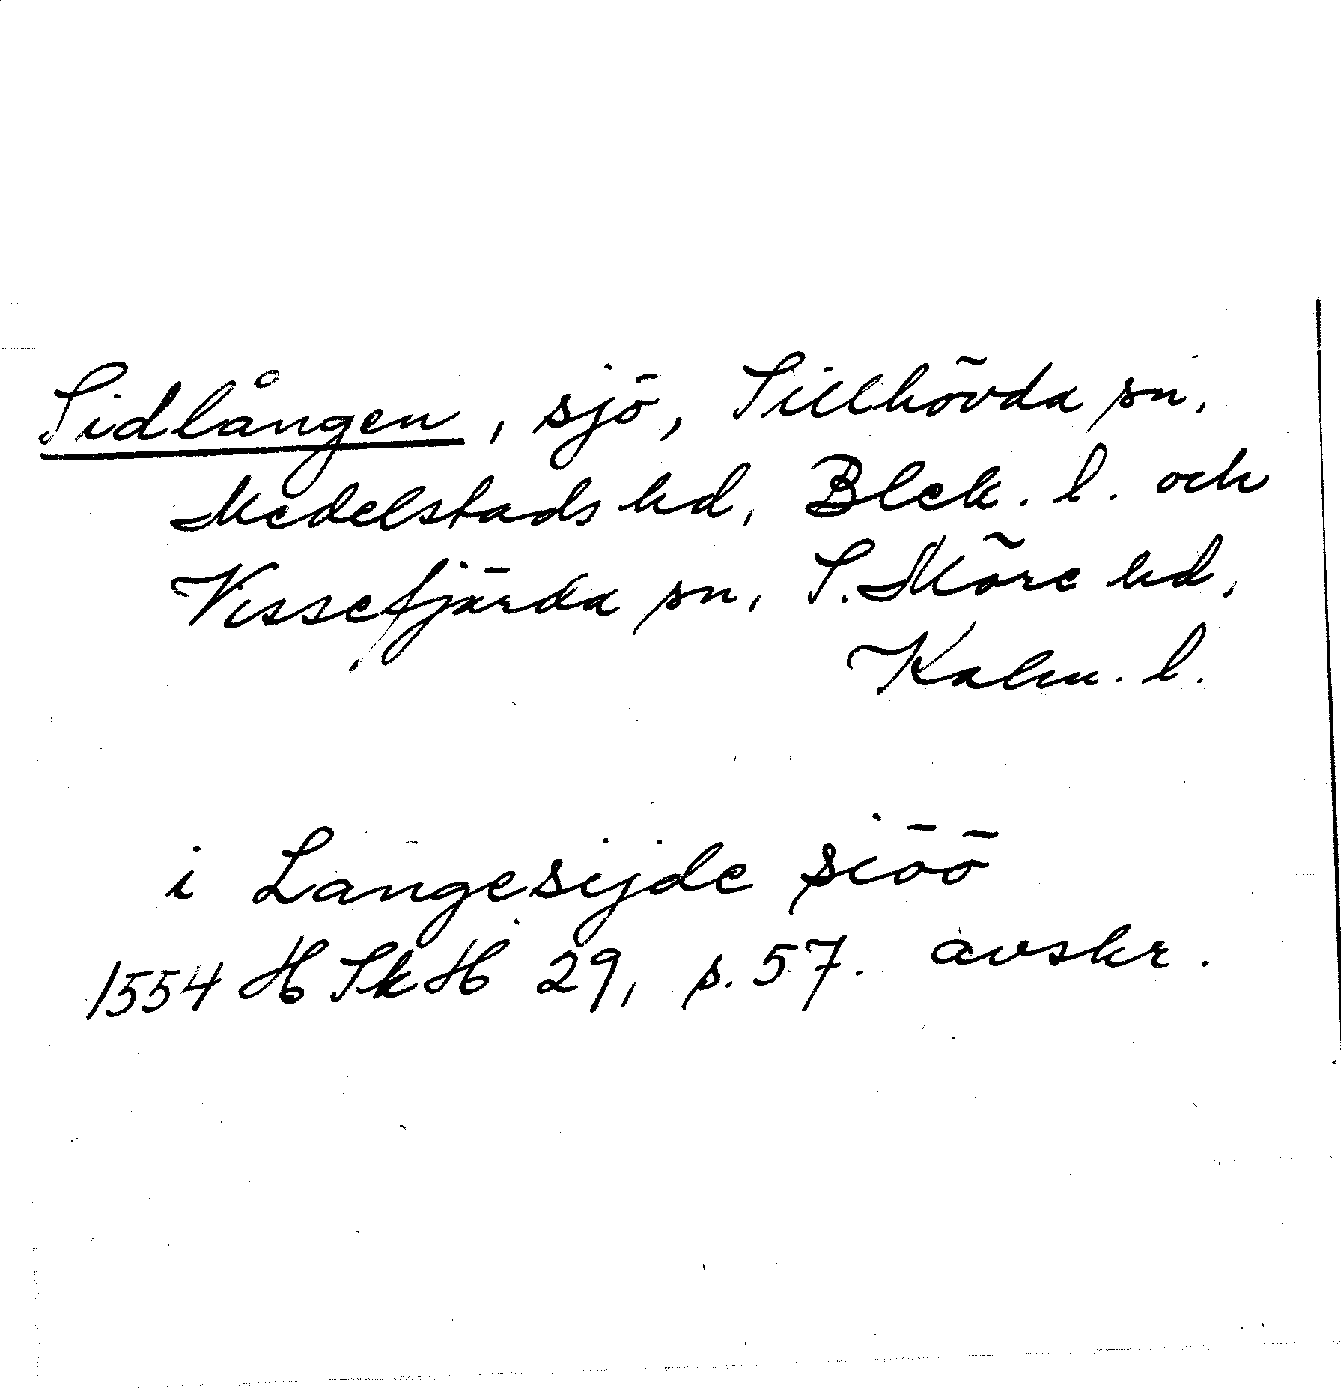 Sidlången, sjö, Sillhövda sn,
Medelstads hd, Blek. l. och
Vissefjärda sn, S. Möre hd,
Kalm. l.
i Langesijde siöö
1554 HSkH 29, s. 57. avskr.